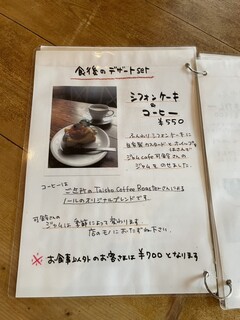 食後のデザートset
シフォンケーキ
&
コーヒー
¥550
ふんわりシフォンケーキに
自家製カスタードとホイップ
ジャムcafe可鈴さんの
ジャムをのせました。
コーヒーは
ご近所のTaisho Coffee Roasterさんによる
ノールのオリジナルブレンドです。
可鈴さんの
ジャムは季節によって変わります
店のモノにおたずね下さい
※お食事以外のお客さまは¥700となります